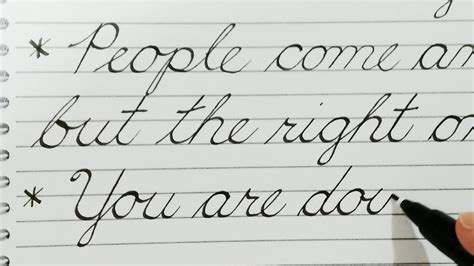 * People come an
but the right o
* You are dou